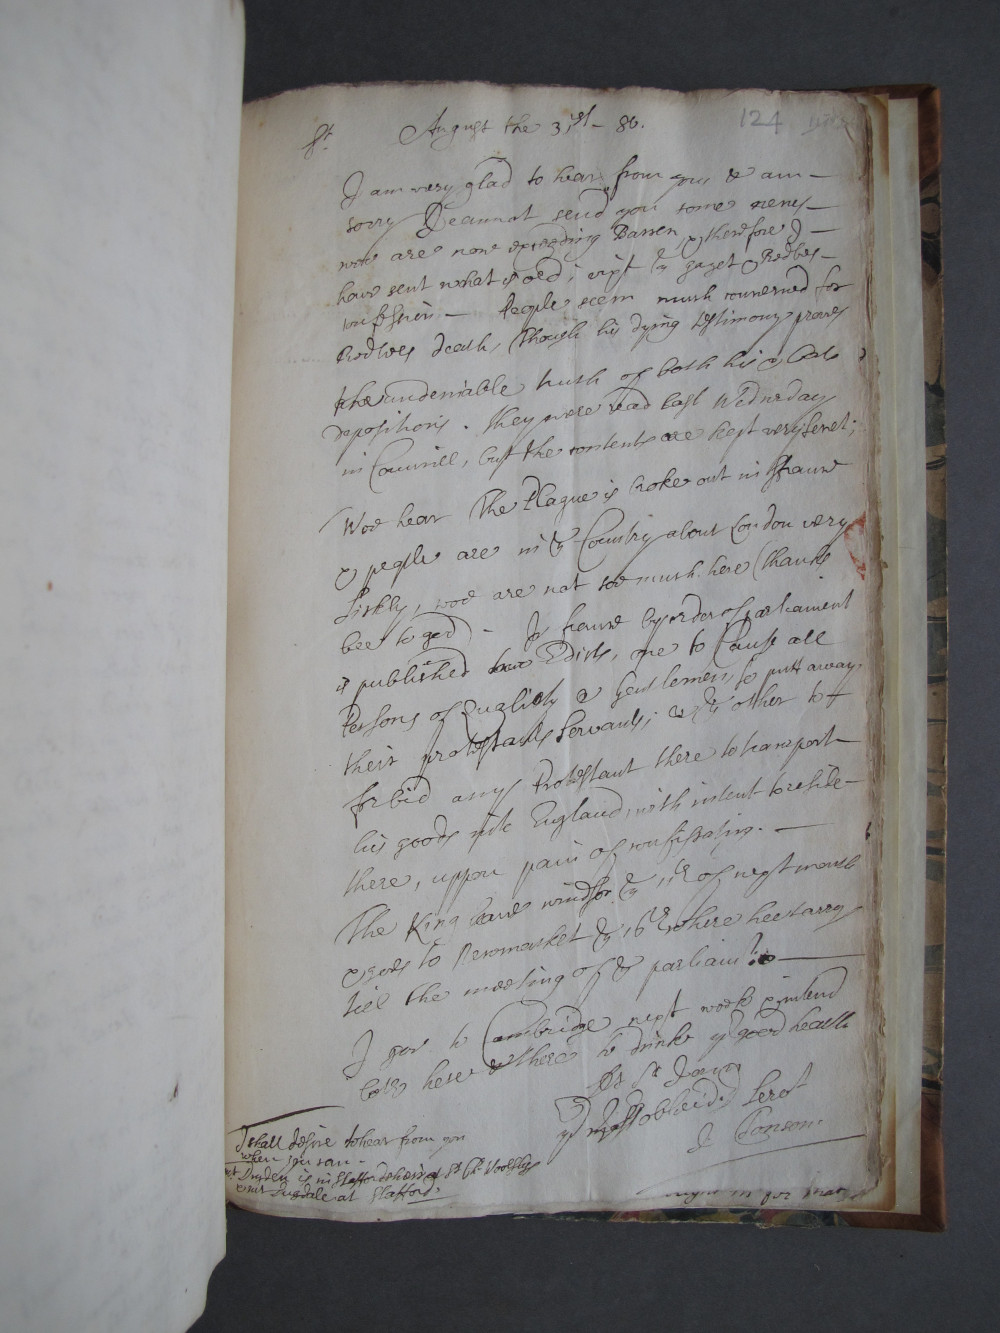 124
Sr. August the 31st - 80.
I am very glad to hear from you & am
sorry I cannot send you some news
wee are now exceeding Barren, & therefore I
have sent what is old; vizt ye gazet & Bedloes
confession. - People seem much concerned for
Bedloes death, though his dying testimony proves
the undeniable truth of both his & Oats
depositions. They were read last Wednesday
in Councill, but the contents are kept very secret;
Wee hear The Plague is broke out in France
& people are in ye Country about London very
sickly, wee are not soe much here (thanks
bee to god) - In France by order of parliament
is published two Edicts, one to Cause all
Persons of English & Gentlemen, to putt away
their protestants servants; & ye other to
forbid any Protestant there to transport
his goods into England, with intent to reside
there, uppon pain of confiscation.
The King leave windsor ye of next month
& goes to Newmarket ye 16th where hee tarry
till the meeting of ye parliamt.
I goe to Cambridge next week & intend
both here & there to drinke yr good health
Sr I am
yr Servt
J
I shall desire to hear from you
when you can
Mr Dryden is in Staffordshire at Sr Ch: Woolsly
& Mr Dugdale at Stafford.